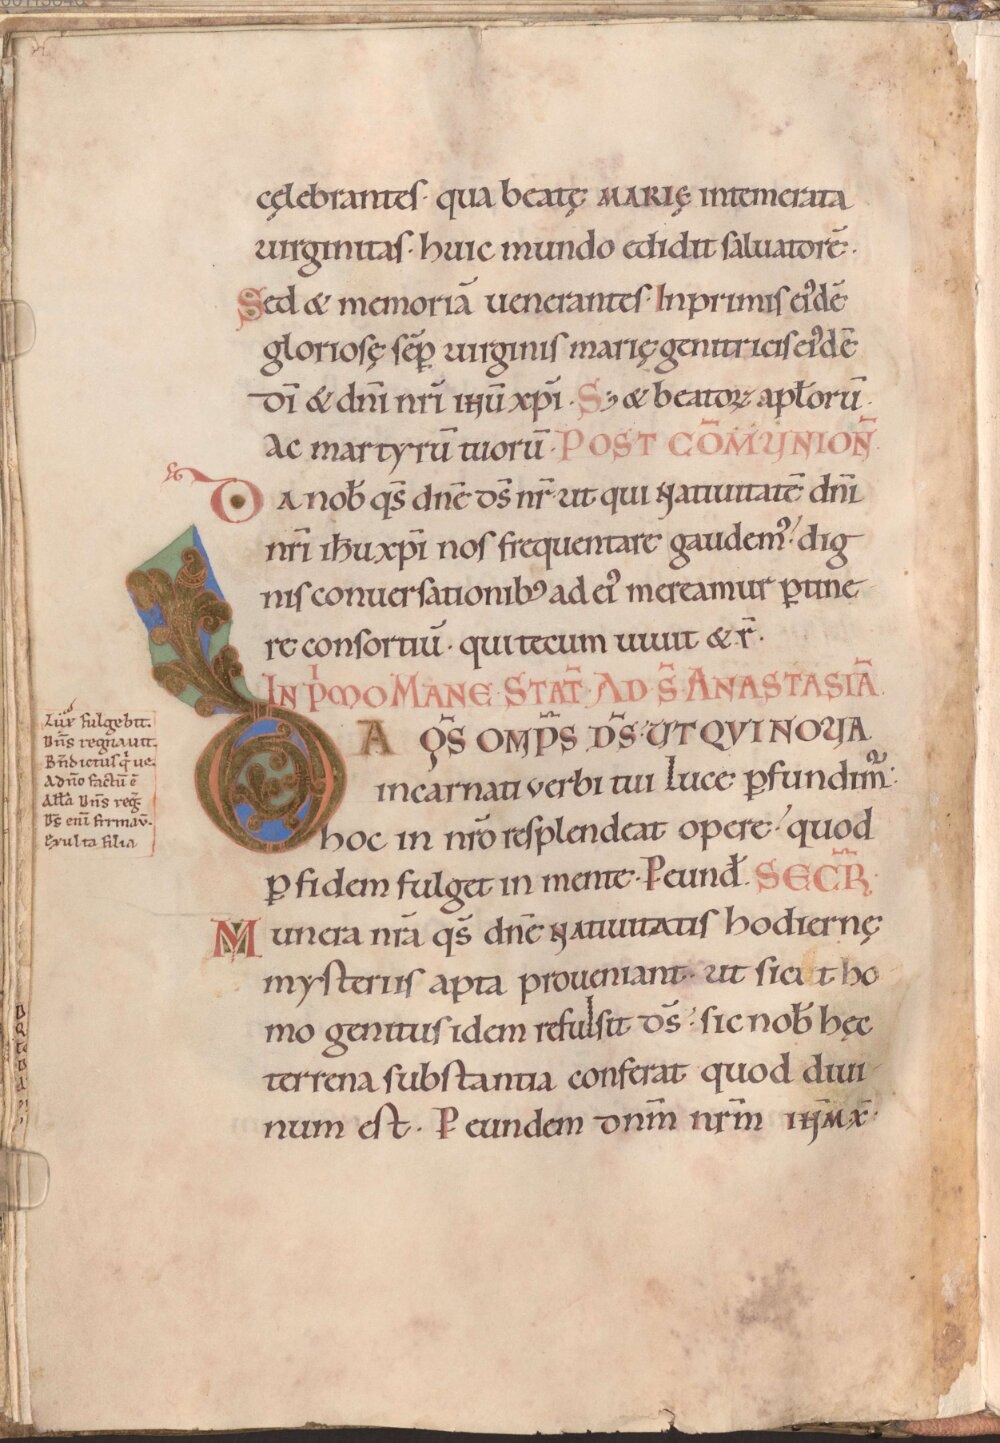 cęlebrantes· qua beatę MARIĘ intemerata
uirginitas· huic mundo edidit saluatorē·
Sed & memoriā uenerantes· Inprimis ei᾿dē
gloriosę sēp uirginis marię genitricis ei᾿dē
dī & dnī nrī ihū xpī· S; & beatoꝝ aplorū·
Ac martyrū tuorū· POST CŌMUNION̄·
DA nob̄ qs̄ dnē ds̄ nr̄· ut qui natiuitatē dnī
nrī ihu xpī nos frequentare gaudem᾿· dig
nis conuersationib᾿ ad ei᾿ mereamur ꝑtine
re consortiū· qui tecum uiuit & r̄·
IN PͥMO MANE· STAT̄ AD S̄ ANASTASIĀ
DA QS̄ OMP̄S DS̄· UT QVI NOUA
incarnati verbi tui luce ꝑfundim᾿r·
hoc in nrō resplendeat opere· quod
ꝑ fidem fulget in mente· Peund̄· SECR̄
Munera nrā qs̄ dnē natiuitatis hodiernę
mysteriis apta proueniant· ut sicut ho
mo genitus idem refulsit ds̄· sic nob̄ hęc
terrena substantia conferat quod diui
num est· Peundem dnm̄ nrm̄ ihm̄ x̄·
Lux fulgebit.
Dn̄s regnauit.
Bn̄dictus q̇ ue.
A dn̄o factū ē
All̄a Dn̄s reḡ
Ds̄ enī firmaū.
Exulta filia